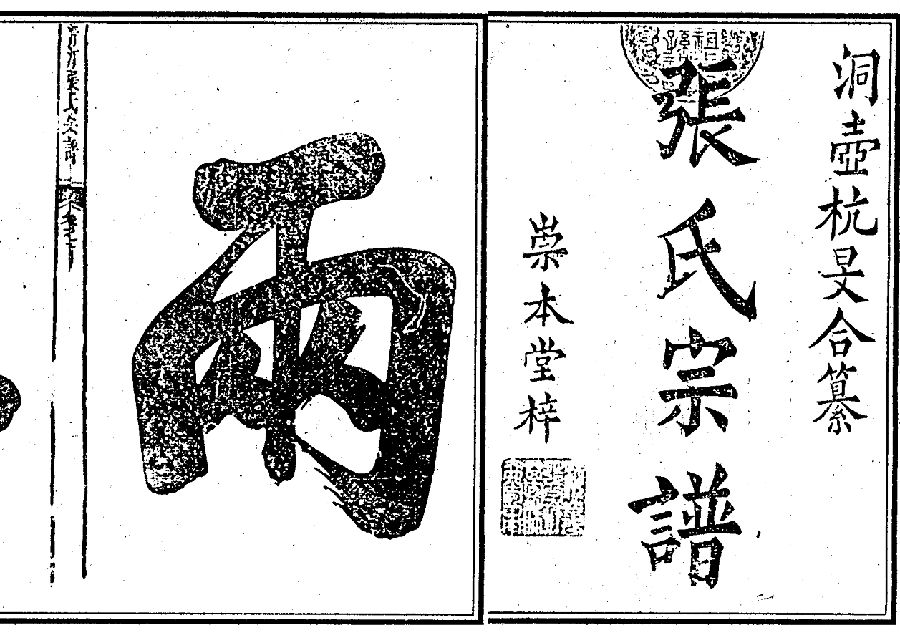 洞壺杭旻合纂
張氏宗譜
崇本堂梓
雨